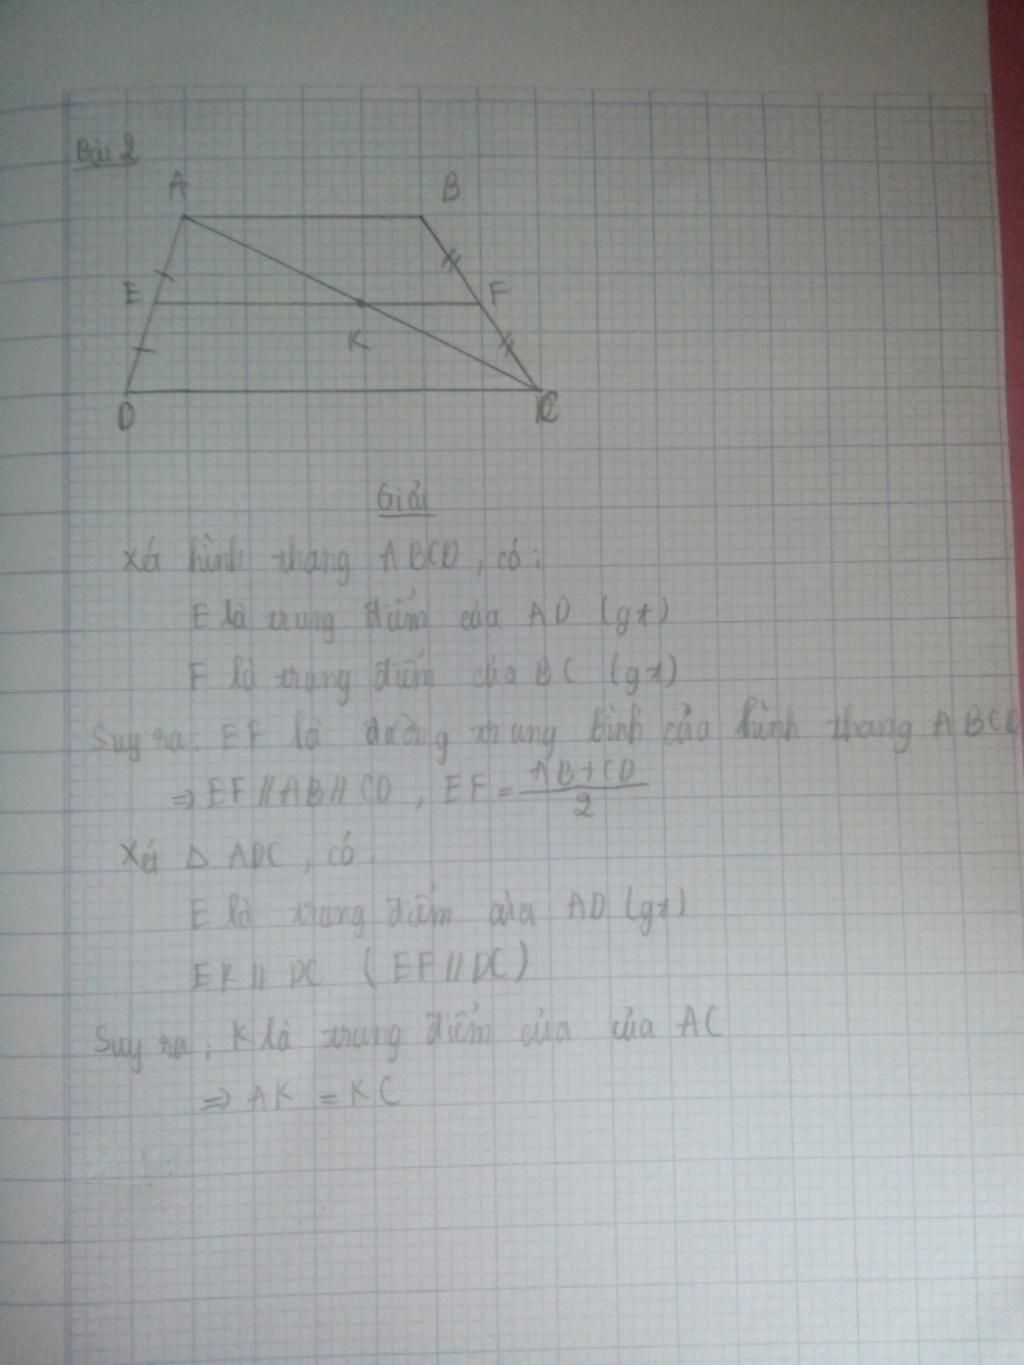 Bài 2
A B
E F
K
D C
Giải
Xét hình thang ABCD, có:
E là trung điểm của AD (gt)
F là trung điểm của BC (gt)
Suy ra: EF là đường trung bình của hình thang ABCD
⇒ EF // AB // CD , EF = \frac{AB+CD}{2}
Xét Δ ADC, có
E là trung điểm của AD (gt)
EK // DC ( EF // DC )
Suy ra: K là trung điểm của của AC
⇒ AK = KC